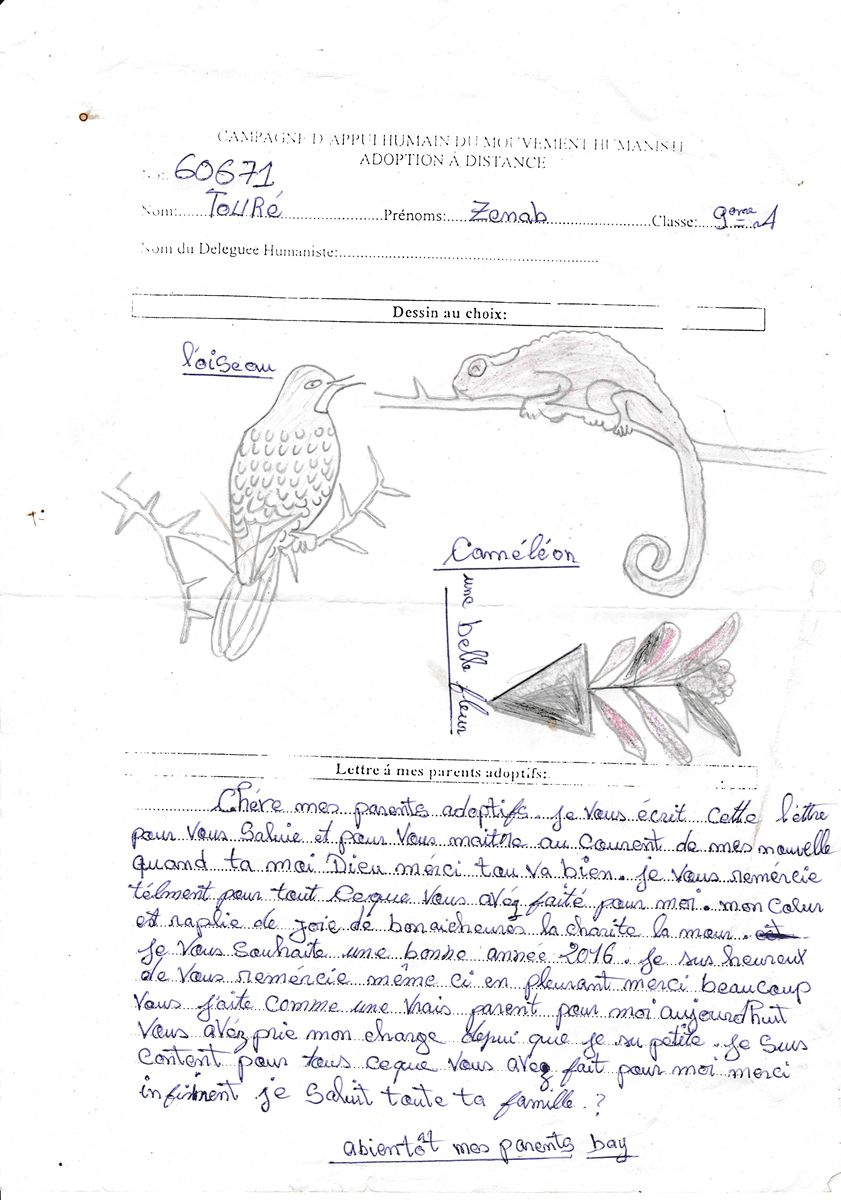 CAMPAGNE D'APPUI HUMAIN DU MOUVEMENT HUMANISTE
ADOPTION À DISTANCE
No: 60671
Nom: TOURé Prénoms: Zenab Classe: 9eme A
Nom du Deleguee Humaniste:
Dessin au choix:
l'oiseau
Caméléon
une belle fleur
Lettre á mes parents adoptifs:
Chére mes parents adoptifs. je vous écrit cette lettre
pour vous Saluie et pour vous maittre au Courent de mes nouvelle
quand ta moi Dieu mérci tou va bien. je vous remércie
télment pour tout Ceque vous avéz faité pour moi. mon Cœur
et raplie de joie de bonaicheures la charite la mour.
je vous Souhaite une bonne année 2016. je sus heureux
de vous remércie même ci en pleurant merci beaucoup
vous faite comme une vrais parent pour moi aujourdhuit
vous avéz prie mon charge depui que je su pétite. je Suis
Content pour tous ceque vous avez fait pour moi merci
infiniment je Saluit toute ta famille.?
abientôt mes parents bay